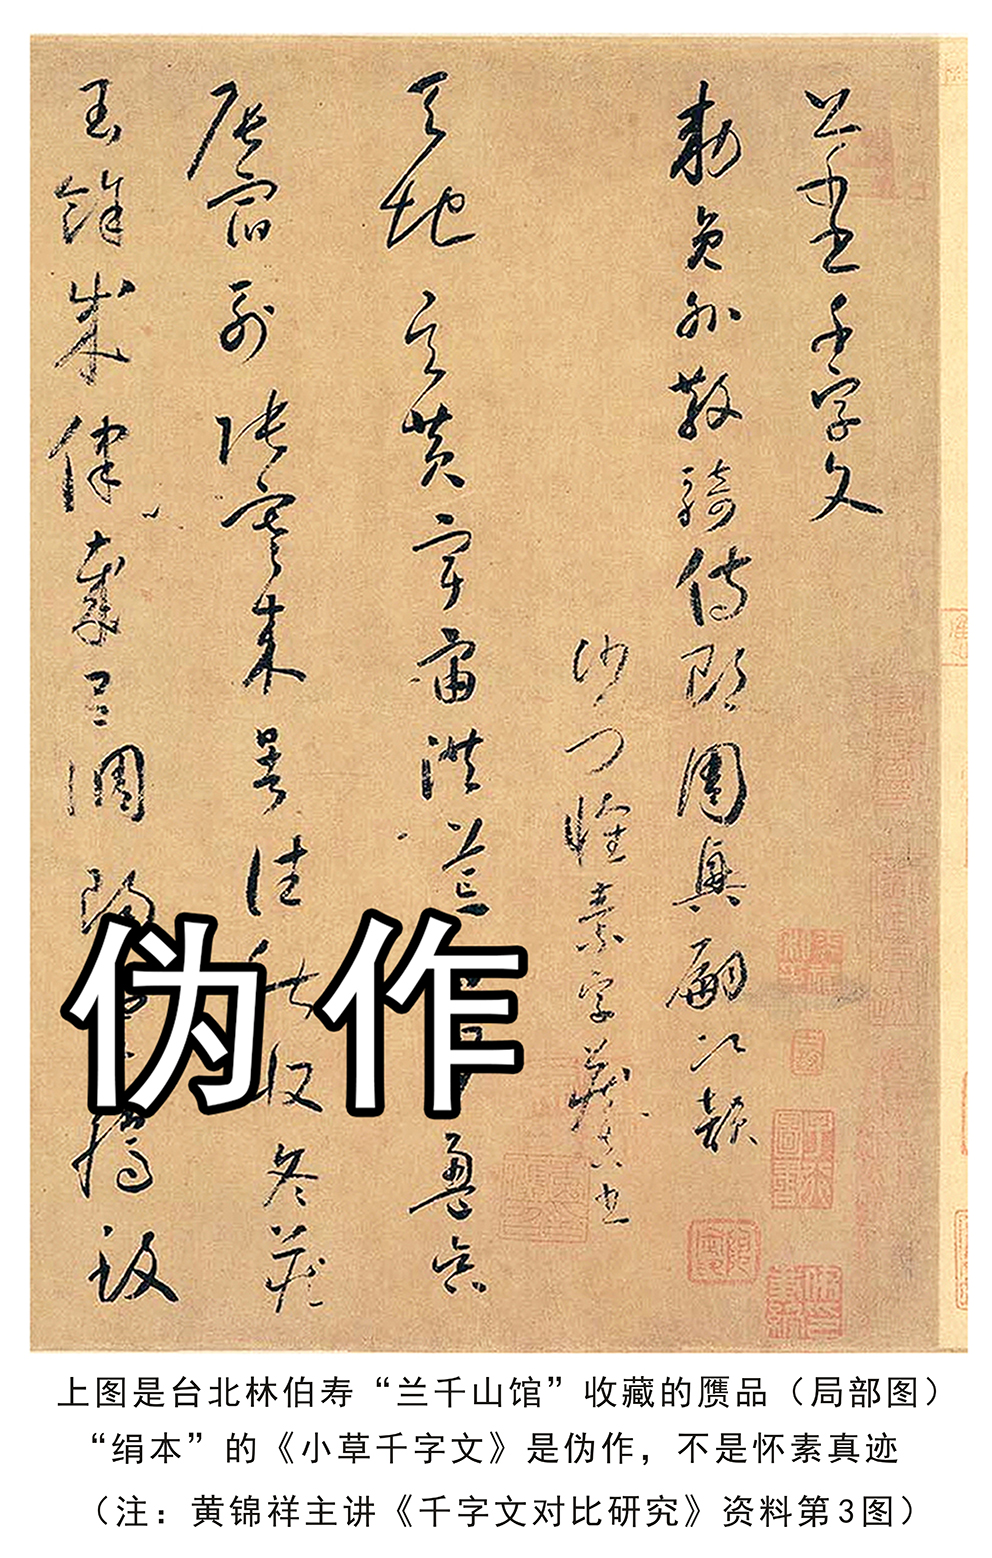 千字文
敕員外散騎侍郎周興嗣次韻
沙門懷素字藏真書
天地玄黃宇宙洪荒盈昃
辰宿列張寒來暑往秋收冬藏
閏餘成律歲呂調陽騰致
伪作
上图是台北林伯寿“兰千山馆”收藏的赝品（局部图）
“绢本”的《小草千字文》是伪作，不是怀素真迹
（注：黄锦祥主讲《千字文对比研究》资料第3图）